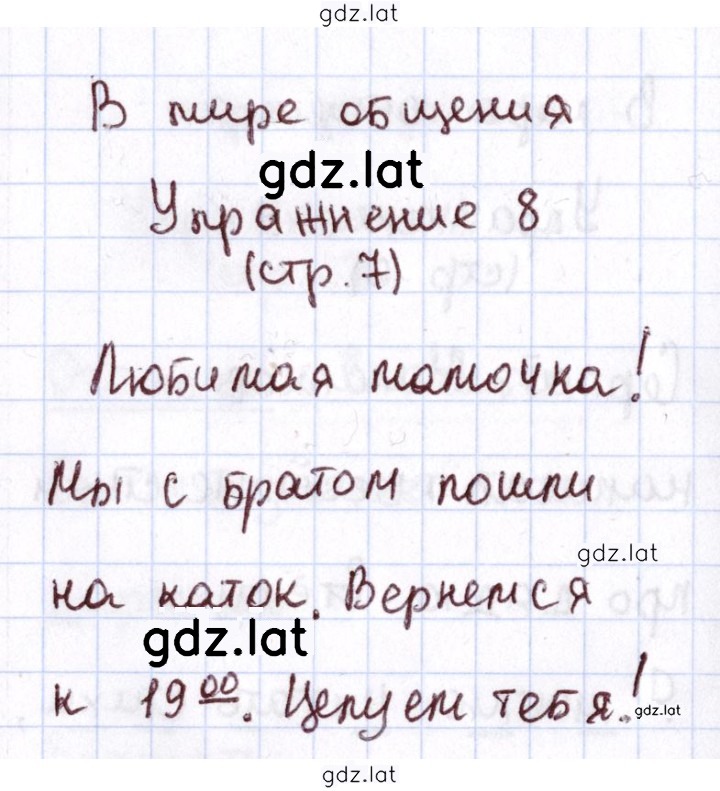 gdz.lat
В мире общения
gdz.lat
Упражнение 8
(стр. 7)
Любимая мамочка!
Мы с братом пошли
gdz.lat
на каток. Вернемся
gdz.lat
к 19 00. Целуем тебя!
gdz.lat
gdz.lat